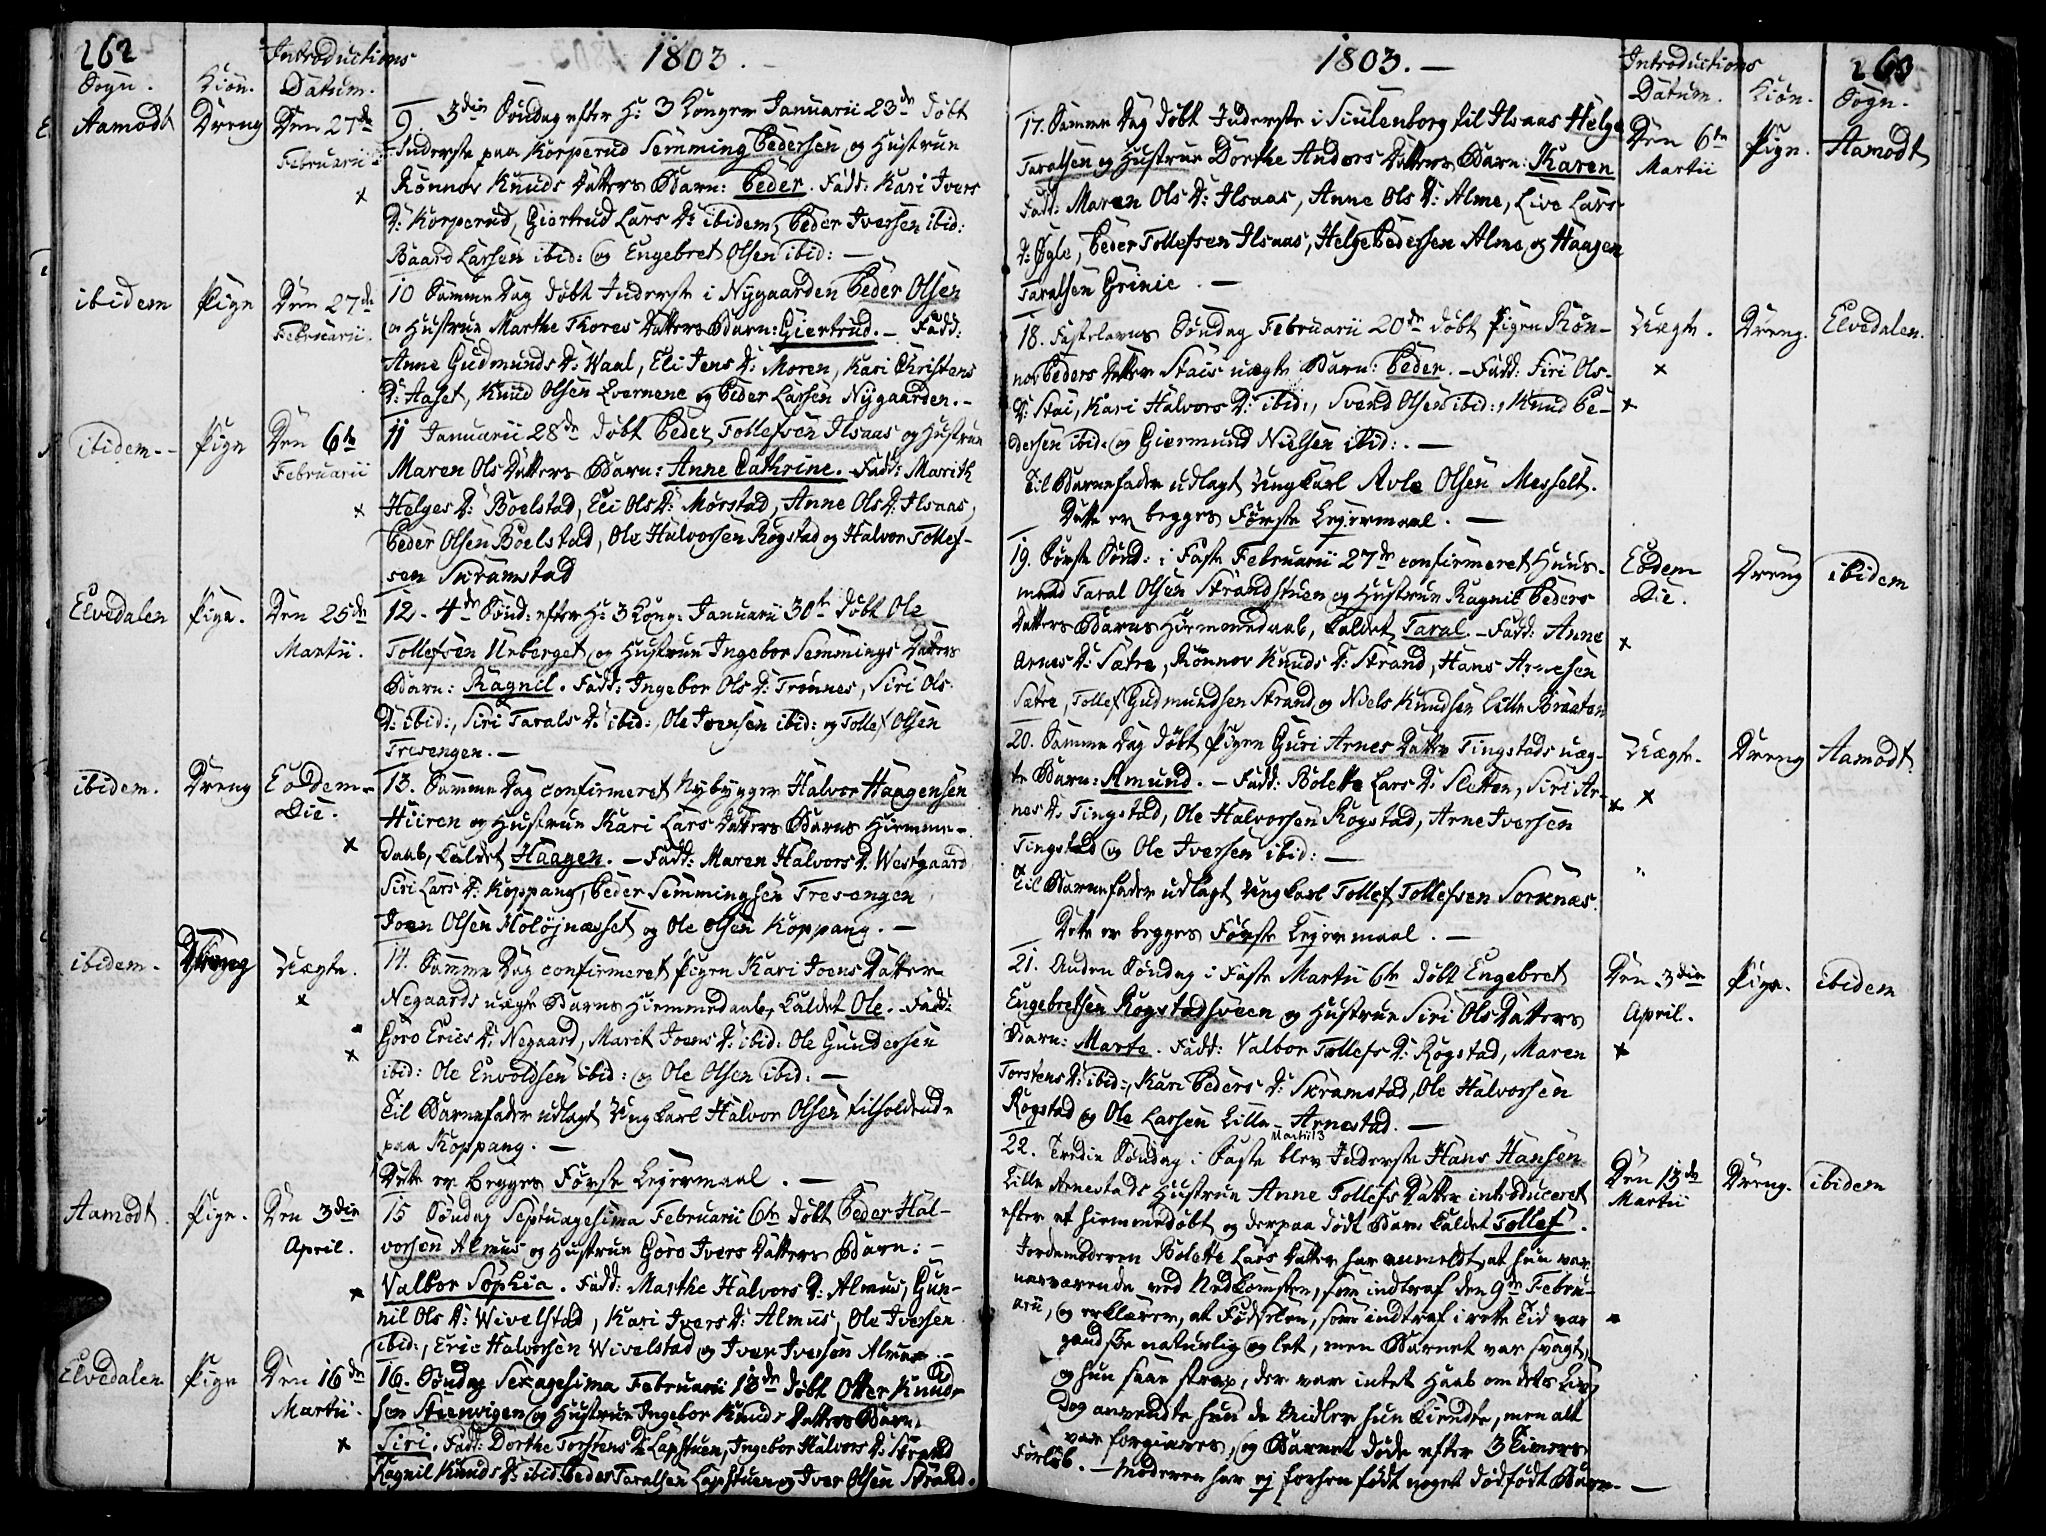 262
1803. -
Introductions
Sogn. Kiön. Datum.
Aamodt Dreng Den 27de Februarii
9 3die Söndag efter H: 3 Konger Januarii 23de döbt
Inderste paa Korperud Semming Pedersen og Hustrue
Rönnov Knuds Datters Barn: Peder. Fadd: Kari Ivers
D: Korperud, Giertrud Lars D: ibidem, Peder Iversen ibid:
Baard Larsen ibid: og Engebret Olsen ibid: —
ibidem Pige Den 27de Februarii.
10 Samme Dag döbt Inderste i Nygaarden Peder Olsen
og Hustrue Marthe Thores Datters Barn: Giertrud. - Fadd:
Anne Gudmunds D: Waal, Eli Jens D: Moren, Kari Christens
D: Aaset, Knud Olsen Evernene og Peder Larsen Nygaarden. -
ibidem. - Pige Den 6te Februarii
11 Januarii 28de döbt Peder Tollefsen Ilsaas og Hustrue
Maren Ols Datters Barn: Anne Cathrine. - Fadd: Marith
Helges D: Boelstad, Eli Ols D: Mörstad, Anne Ols D: Ilsaas,
Peder Olsen Boelstad, Ole Halvorsen Rogstad og Halvor Tollef-
sen Skramstad
Elvedalen Pige. Den 25de Martii.
12. 4de Sönd: efter H: 3 Kong: Januarii 30te döbt Ole
Tollefsen Urberget og Hustrue Ingebor Semmings Datters
Barn: Ragnil. Fadd: Ingebor Ols D: Trönnes, Siri Ols
D: ibid:, Siri Tarals D: ibid:, Ole Ivensen ibid: og Tollef Olsen
Tresengen. —
ibidem. Dreng Eodem Die.
13. Samme Dag confirmeret Nybygger Halvor Haagensen
Hiiren og Hustrue Kari Lars Datters Barns Hiemme-
daab, kaldet Haagen. - Fadd: Maren Halvors D: Westgaard
Siri Lars D: Koppang, Peder Semmingsen Tresengen
Joen Olsen Holöjnæsset og Ole Olsen Koppang. —
ibidem. Dreng Uægte.
14. Samme Dag confirmeret Pigen Kari Joens Datter
Negaards uægte Barns Hiemmedaab, kaldet Ole. Fadd:
Goro Erics D: Negaard, Marit Joens D: ibid: Ole Gundersen
ibid: Ole Envoldsen ibid: og Ole Olsen ibid: —
Til Barnefader udlagt Ungkarl Halvor Olsen tilholdende
paa Koppang. —
Dette er begges Förste Lejermaal. —
Aamodt. Pige. Den 3die April.
15 Söndag Septuagesima Februarii 6te döbt Peder Hal-
vorsen Almus og Hustrue Goro Ivers Datters Barn: -
Valbor Sophia. Fadd: Marthe Halvors D: Almus, Gun-
nil Ols D: Wivelstad, Kari Ivers D: Almus, Ole Iversen
ibid:, Eric Halvorsen Wivelstad og Iver Iversen Almus. -
Elvedalen Pige Den 16de Martii.
16. Söndag Sexagesima Februarii 13de döbt Otter Knud-
sen Steenvigen og Hustrue Ingebor Knuds Datters Barn
Siri. Fadd: Dorthe Torstens D: Lapstuen, Ingebor Halvors D: Strand
Ragnil Knuds D: ibid: Peder Taralsen Lapstuen og Iver Olsen Strand.
1803. —
263
Introductions
Datum. Kiön. Sogn.
17. Samme Dag döbt Inderste i Siulenborg til Ilsaas Helge
Taralsen og Hustrue Dorthe Anders Datters Barn: Karen
Fadd: Maren Ols D: Ilsaas, Anne Ols D: Alme, Live Lars
D: Ögle, Peder Tollefsen Ilsaas, Helge Pedersen Alme, og Haagen
Taralsen Grinie. —
Den 6te Martii Pige. Aamodt
18. Fastelavns Söndag Februarii 20de döbt Pigen Rön-
nov Peders Datter Stais uægte Barn: Peder. - Fadd: Siri Ols
D: Stai, Kari Halvors D: ibid:, Svend Olsen ibid:, Knud Pe-
dersen ibid: og Giermund Nielsen ibid: —
Til Barnefader udlagt Ungkarl Avle Olsen Messelt.
Dette er begges Förste Lejermaal. —
Uægte. Dreng. Elvedalen.
19. Förste Sönd: i Faste Februarii 27de confirmeret Huus-
mand Taral Olsen Strandstuen og Hustrue Ragnil Peders
Datters Barns Hiemmedaab, kaldet Taral. - Fadd: Anne
Arnes D: Sætre, Rönnov Knuds D: Strand, Hans Arnesen
Sætre, Tollef Gudmundsen Strand og Niels Knudsen Lille Braaten
Eodem Die. Dreng ibidem
20. Samme Dag döbt Pigen Guri Arnes Datter Tingstads uæg-
te Barn: Amund. - Fadd: Bolette Lars D: Sletten, Siri Ar-
nes D: Tingstad, Ole Halvorsen Rogstad, Arne Iversen
Tingstad og Ole Iversen ibid: —
Til Barnefader udlagt Ungkarl Tollef Tollefsen Sorknæs.
Dette er begges Förste Lejermaal. —
Uægte. Dreng Aamodt.
21. Anden Söndag i Faste Martii 6te döbt Engebret
Engebretsen Rogstadsveen og Hustrue Siri Ols Datters
Barn: Marte. Fadd: Valbor Tollefs D: Rogstad, Maren
Torstens D: ibid:, Kari Peders D: Skramstad, Ole Halvorsen
Rogstad og Ole Larsen Lille - Arnestad. —
Den 3die April. Pige. ibidem
Martii 13
22. Tredie Söndag i Faste blev Inderste Hans Hansen
Lille Arnestads Hustrue Anne Tollefs Datter introduceret
efter et hiemmedöbt og derpaa dödt Barn kaldet Tollef.
Jordemoderen Bolette Lars Datter har anmeldt, at hun var
nærværende ved Nedkomsten, som indtraf den 9de Febru-
arii, og erklærer, at Födselen, som indtraf i rette Tid var
gandske naturlig og let, men Barnet var svagt,
og hun saae strax, der var intet Haab om dets Liv,
dog anvendte hun de Midler hun kiendte, men alt
var forgieves, og Barnet döde efter 3 Timers
Forlöb. — Moderen har ej forhen födt noget dödfödt Barn. —
Den 13de Martii Dreng. ibidem